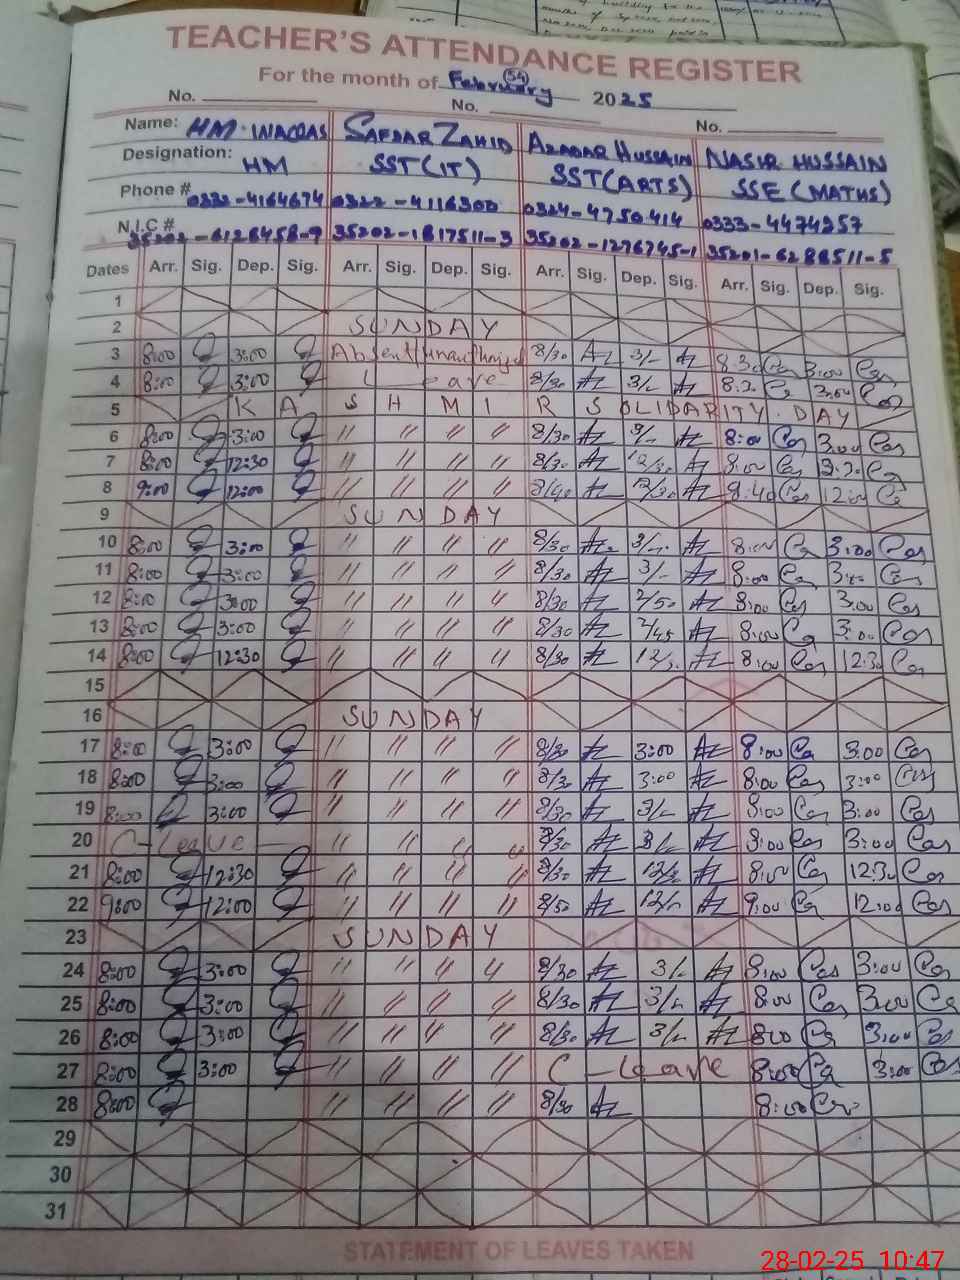 TEACHER'S ATTENDANCE REGISTER
For the month of February (54) 2025
No. No. No.
Name: HM. WAQAS SAFDAR ZAHID AZADAR HUSSAIN NASIR HUSSAIN
Designation: HM SST(IT) SST(ARTS) SSE (MATHS)
Phone # 0332-4164674 0322-4116300 0324-4750414 0333-4474257
N.I.C# 35202-6126458-9 35202-1817511-3 35202-1276745-1 35201-6288511-5
Dates Arr. Sig. Dep. Sig. Arr. Sig. Dep. Sig. Arr. Sig. Dep. Sig. Arr. Sig. Dep. Sig.
1
2 SUNDAY
3 8:00 3:00 Absent/unauthorized 8/30 3/- 8.30 3:00
4 8:00 3:00 Leave 8/30 3/- 8.30 3:00
5 KASHMIR SOLIDARITY. DAY
6 8:00 3:00 " " " " 8/30 3/- 8:00 3:00
7 8:00 12:30 " " " " 8/30 12/30 8:00
8 9:00 12:00 " " " " 8/40 8:40 12:00
9 SUNDAY
10 8:00 3:00 " " " " 8/30 3/- 8:00 3:00
11 8:00 3:00 " " " " 8/30 3/- 8:00 3:00
12 8:00 3:00 " " " " 8/30 2/50 8:00 3:00
13 8:00 3:00 " " " " 8/30 2/45 8:00 3:00
14 8:00 12:30 " " " " 8/30 8:00 12:30
15
16 SUNDAY
17 8:00 3:00 " " " " 8/30 3:00 8:00 3:00
18 8:00 3:00 " " " " 8/30 3:00 8:00 3:00
19 8:00 3:00 " " " " 8/30 3/- 8:00 3:00
20 C-Leave " " " " 8/30 3/- 8:00 3:00
21 8:00 12:30 " " " " 8/30 12/30 8:00 12:30
22 9:00 12:00 " " " " 8/50 12/- 9:00 12:00
23 SUNDAY
24 8:00 3:00 " " " " 8/30 3/- 8:00 3:00
25 8:00 3:00 " " " " 8/30 3/- 8:00 3:00
26 8:00 3:00 " " " " 8/30 3/- 8:00 3:00
27 8:00 3:00 " " " " C-Leave 8:00 3:00
28 8:00 " " " " 8/30 8:00
29
30
31
STATEMENT OF LEAVES TAKEN
28-02-25 10:47